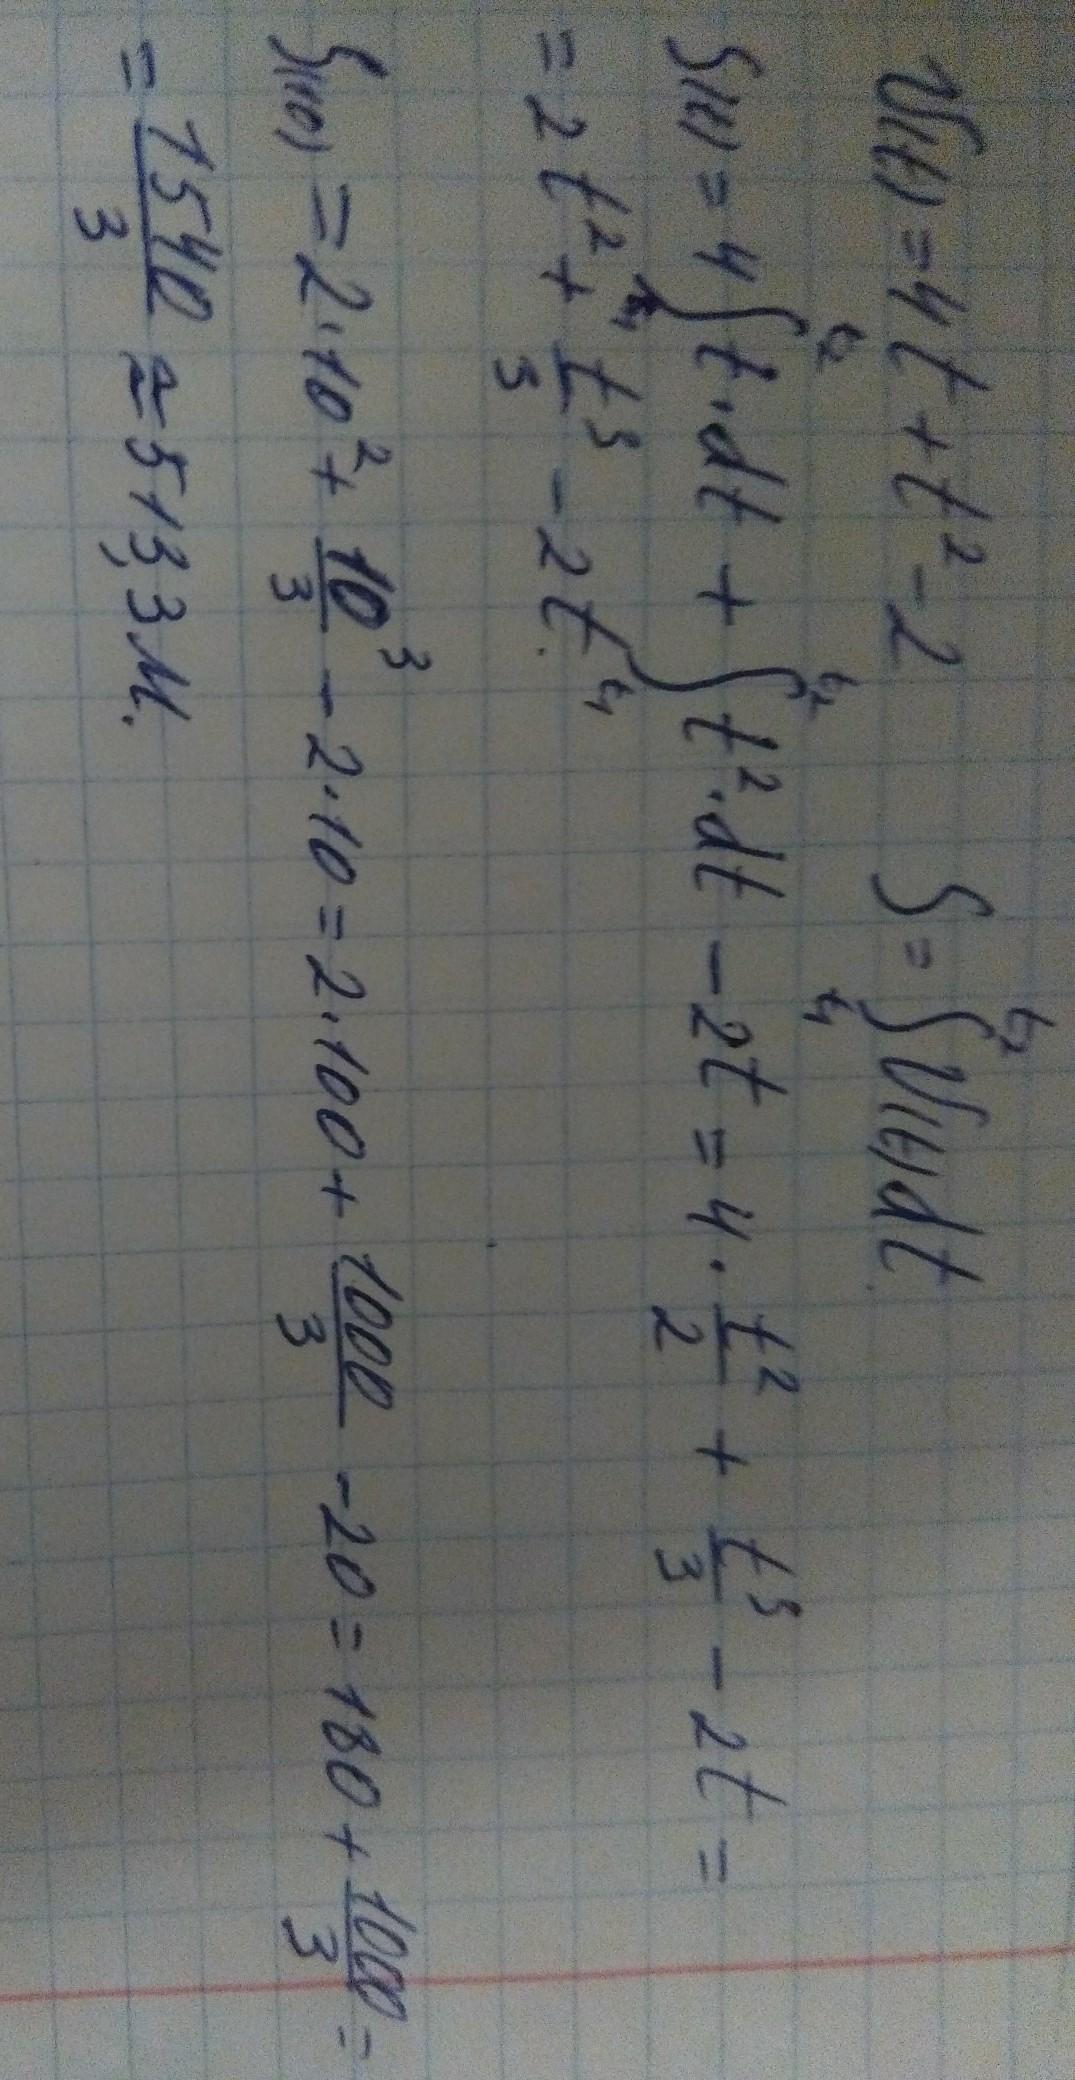 V(t) = 4t + t² - 2    S = ∫_{t₁}^{t₂} V(t)dt
S(t) = 4 ∫_{t₁}^{t₂} t·dt + ∫_{t₁}^{t₂} t²·dt - 2t = 4 · t²/2 + t³/3 - 2t =
= 2t² + t³/3 - 2t.
S(10) = 2·10² + 10³/3 - 2·10 = 2·100 + 1000/3 - 20 = 180 + 1000/3 =
= 1540/3 ≈ 513,3 м.